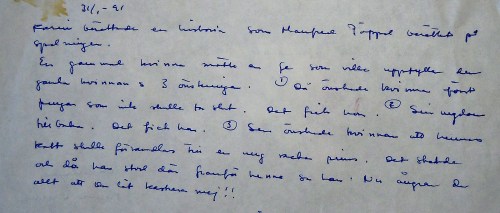 31/1 -91
Karin berättade en historia som Manfred Päppel berättat på
spelningen.
En gammal kvinna mötte en fe som ville uppfylla den
gamla kvinnans 3 önskningar. ① Då önskade kvinnan först
pengar som inte skulle ta slut. Det fick hon. ② Sin ungdom
tillbaka. Det fick hon. ③ Sen önskade kvinnan att hennes
katt skulle förvandlas till en ung vacker prins. Det skedde
och då han stod där framför henne sa han: Nu ångrar du
allt att du lät kastrera mej!!!